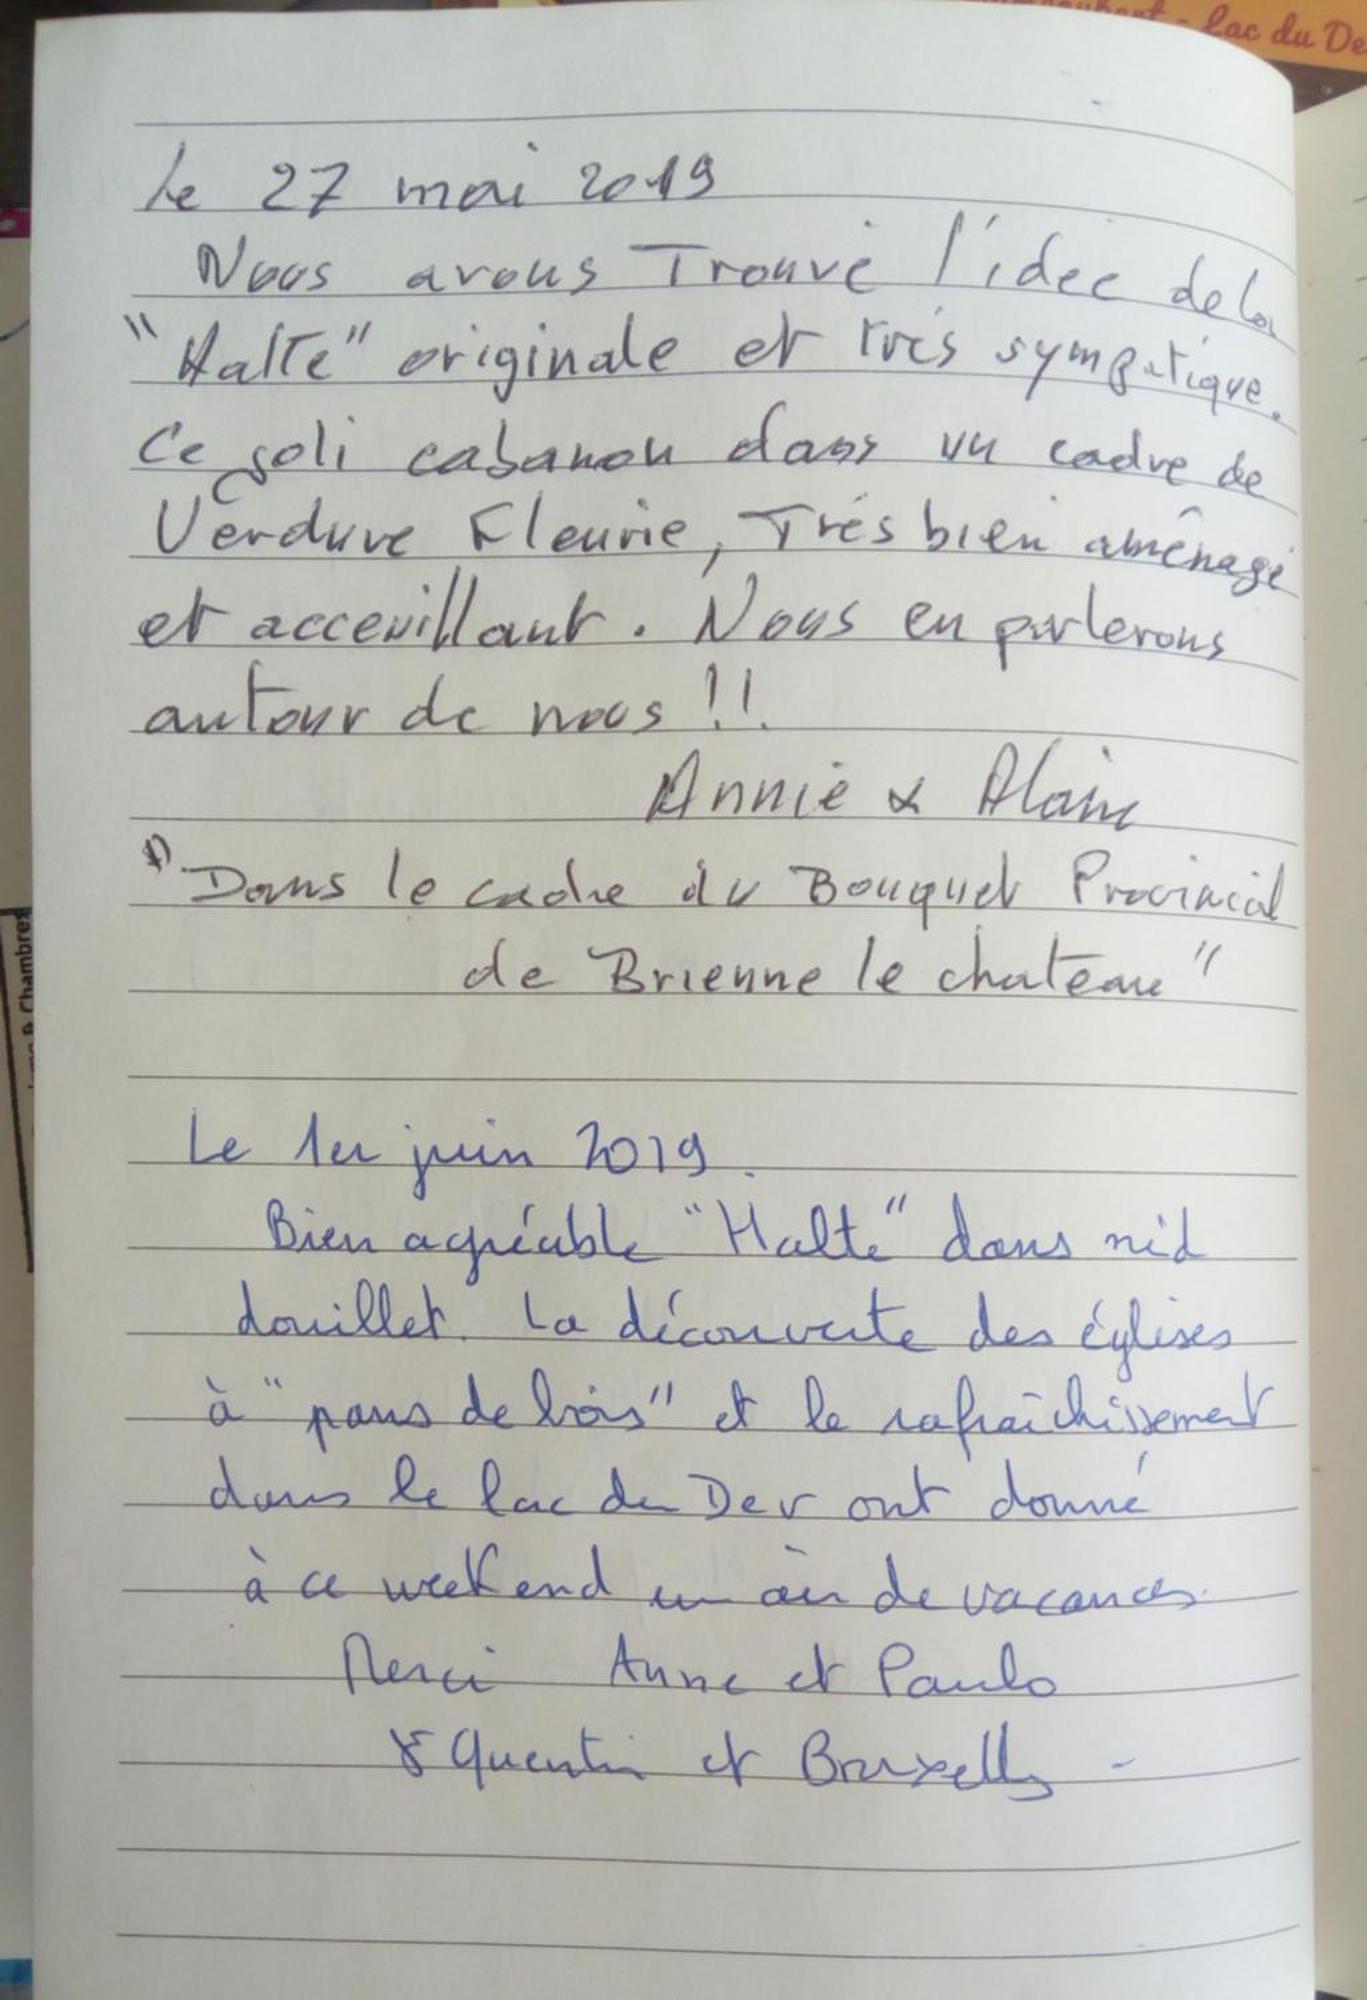 lac du De
Le 27 mai 2019
Nous avons Trouvé l'idée de la
"Halte" originale et très sympatique.
Ce joli cabanon dans un cadre de
Verdure Fleurie, Très bien aménagé
et acceuillant. Nous en parlerons
autour de nous !!.
Annie & Alain
"Dans le cadre du Bouquet Provincial
de Brienne le chateau"
& Chambres
Le 1er juin 2019.
Bien agréable "Halte" dans nid
douillet. La découverte des églises
à "pans de bois" et le rafraîchissement
dans le lac du Der ont donné
à ce week end un air de vacances.
Merci Anne et Paulo
St Quentin et Bruxelles -